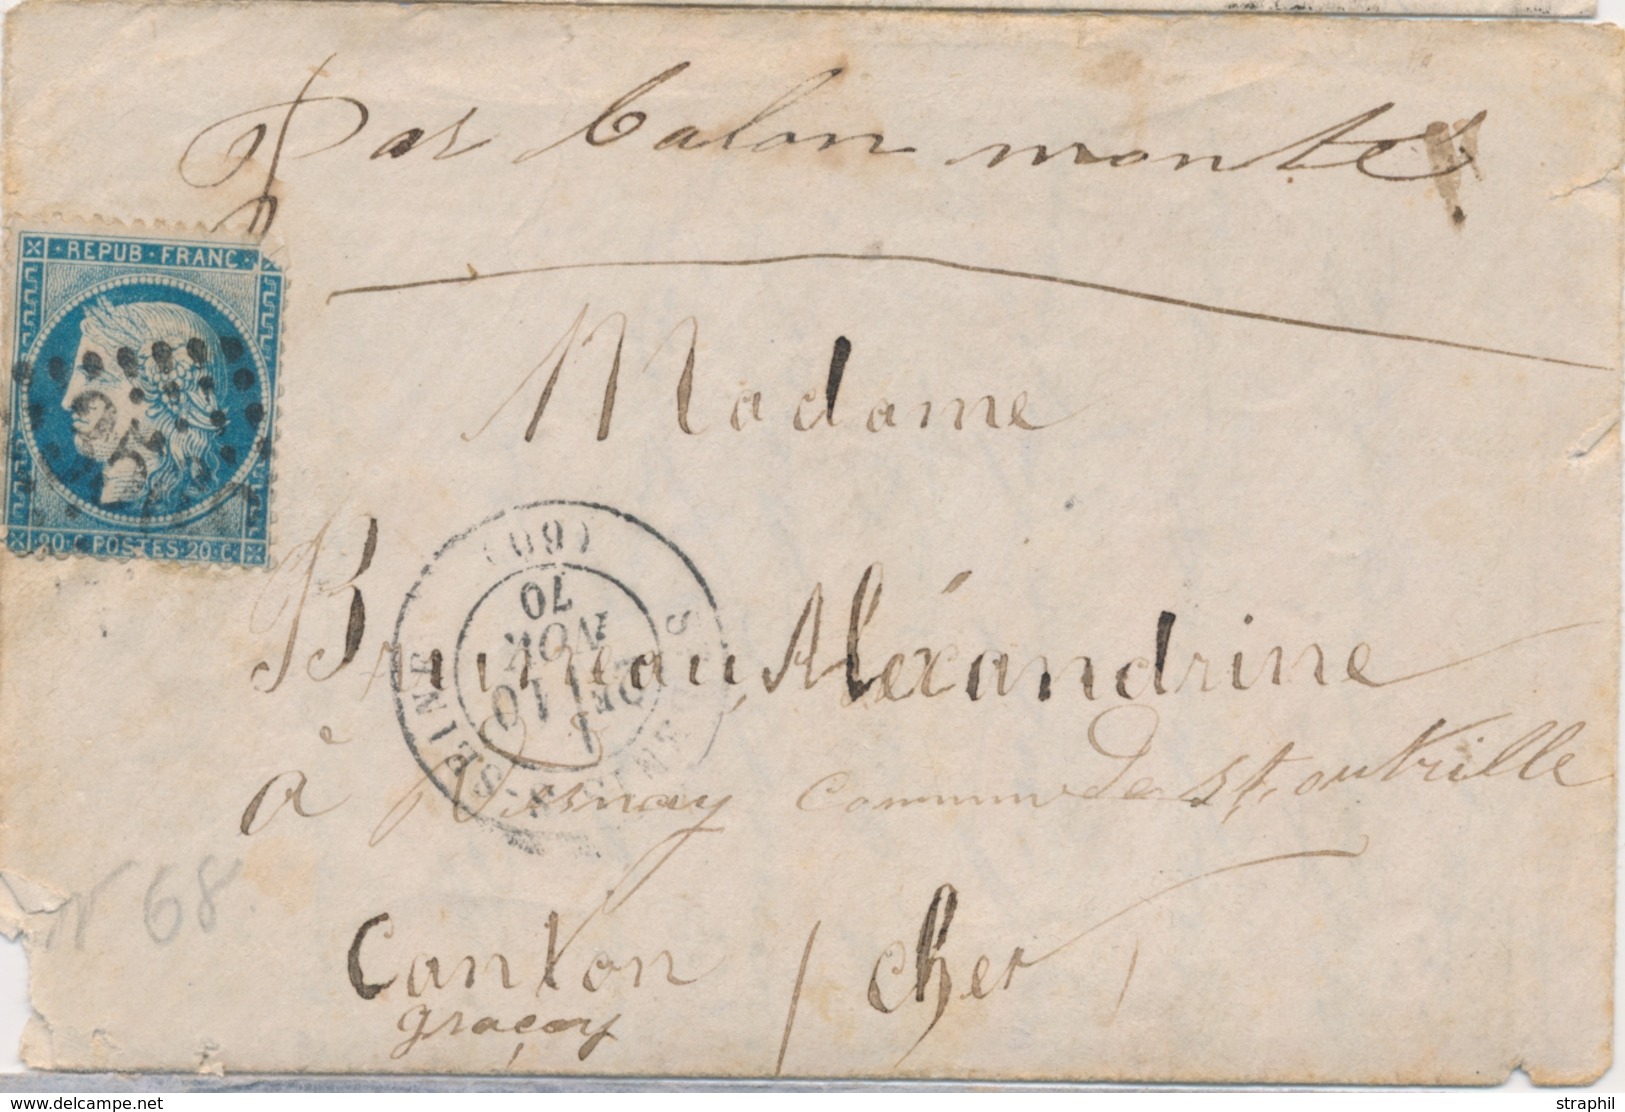 Par balon monté
REPUB · FRANC
20 · C POSTES · 20 · C
Madame
(60)
70
NOV.
10
SEINE
Bruneau, Aléxandrine
à commune de St. outrille
Canton / Cher
graçay
N 68
delcampe.net
straphil